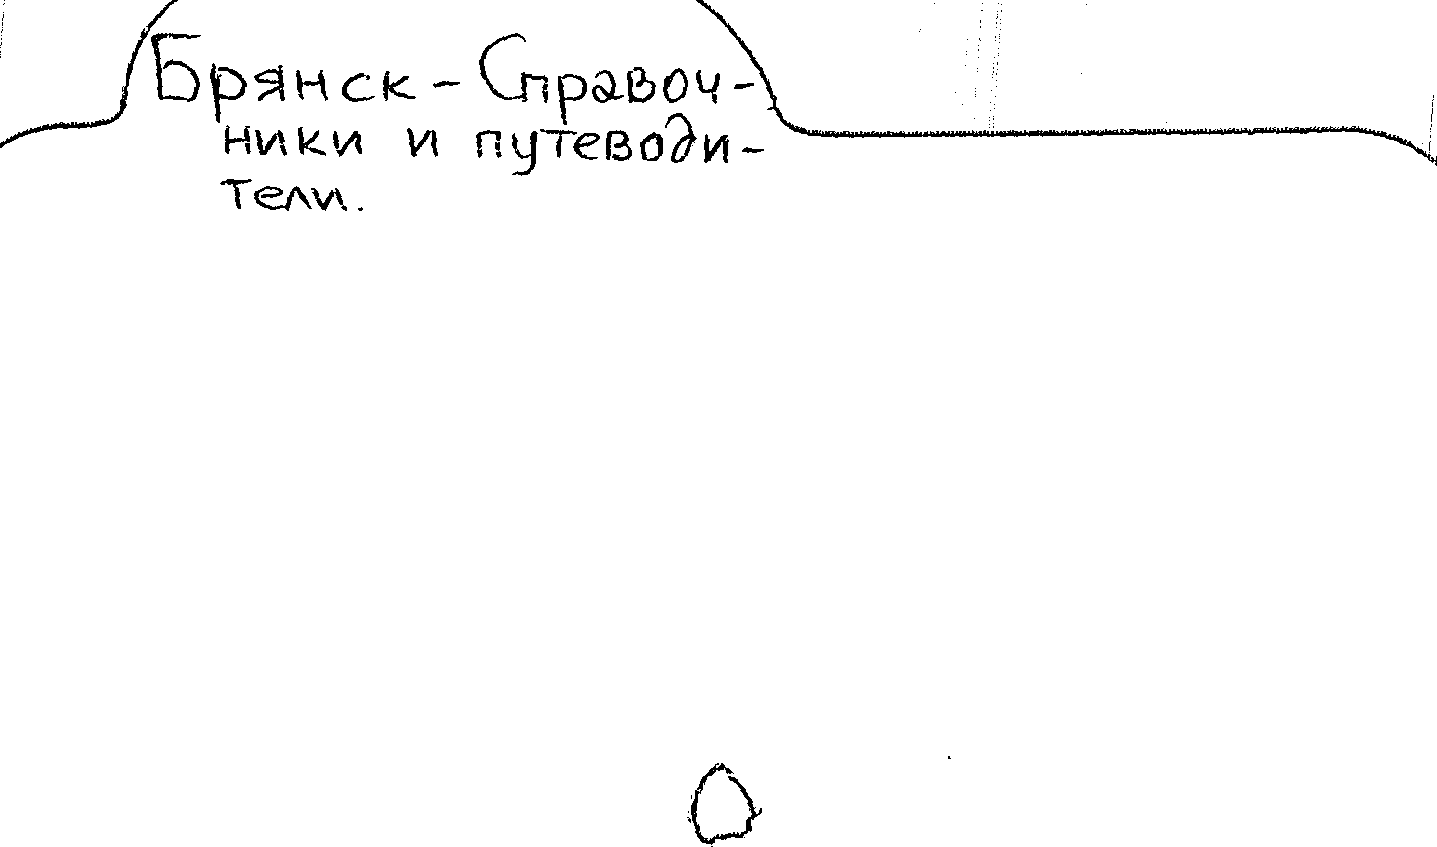 Брянск - Справоч-
ники и путеводи-
тели.